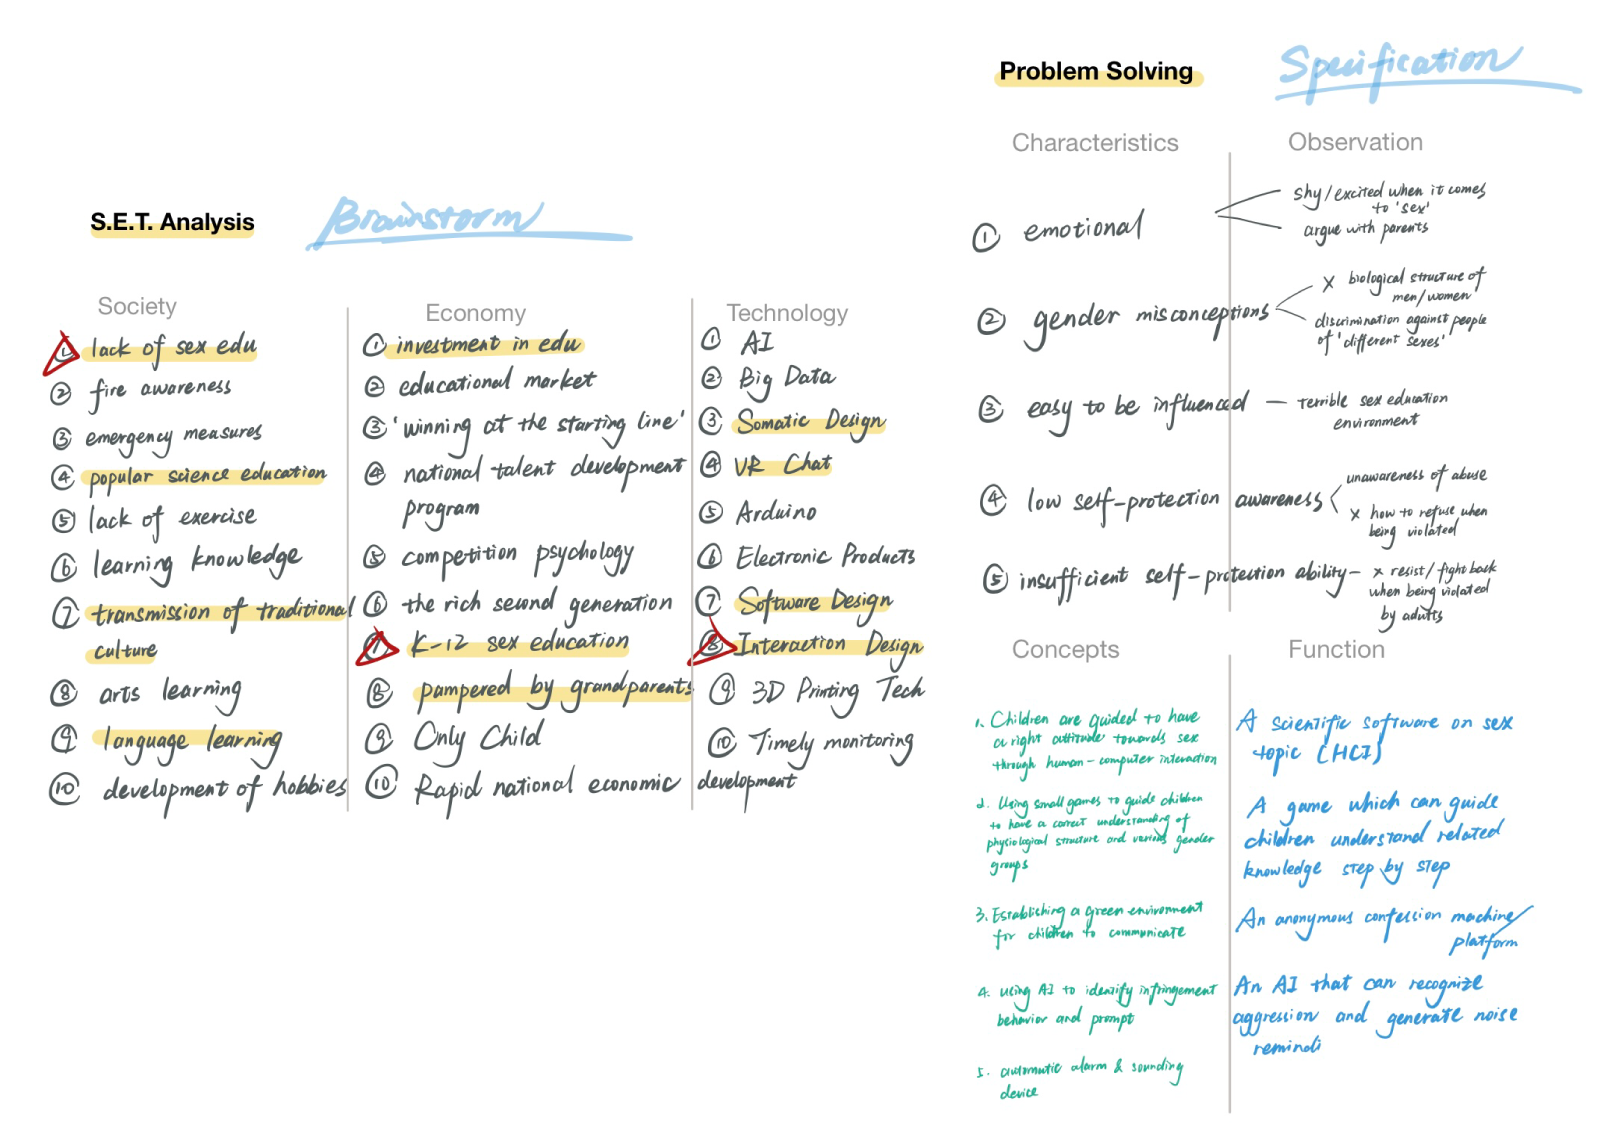 S.E.T. Analysis
Brainstorm
Society
① lack of sex edu
② fire awareness
③ emergency measures
④ popular science education
⑤ lack of exercise
⑥ learning knowledge
⑦ transmission of traditional
culture
⑧ arts learning
⑨ language learning
⑩ development of hobbies
Economy
① investment in edu
② educational market
③ 'winning at the starting line'
④ national talent development
program
⑤ competition psychology
⑥ the rich second generation
⑦ K-12 sex education
⑧ pampered by grandparents
⑨ Only Child
⑩ Rapid national economic development
Technology
① AI
② Big Data
③ Somatic Design
④ VR Chat
⑤ Arduino
⑥ Electronic Products
⑦ Software Design
⑧ Interaction Design
⑨ 3D Printing Tech
⑩ Timely monitoring
Problem Solving
Specification
Characteristics
Observation
① emotional
shy/excited when it comes
to 'sex'
argue with parents
② gender misconceptions
× biological structure of
men/women
discrimination against people
of 'different sexes'
③ easy to be influenced
terrible sex education
environment
④ low self-protection awareness
unawareness of abuse
× how to refuse when
being violated
⑤ insufficient self-protection ability
× resist/fight back
when being violated
by adults
Concepts
1. Children are guided to have
a right attitude towards sex
through human-computer interaction
2. Using small games to guide children
to have a correct understanding of
physiological structure and various gender
groups
3. Establishing a green environment
for children to communicate
4. using AI to identify infringement
behavior and prompt
5. automatic alarm & sounding
device
Function
A scientific software on sex
topic (HCI)
A game which can guide
children understand related
knowledge step by step
An anonymous confession machine/
platform
An AI that can recognize
aggression and generate noise
remindi